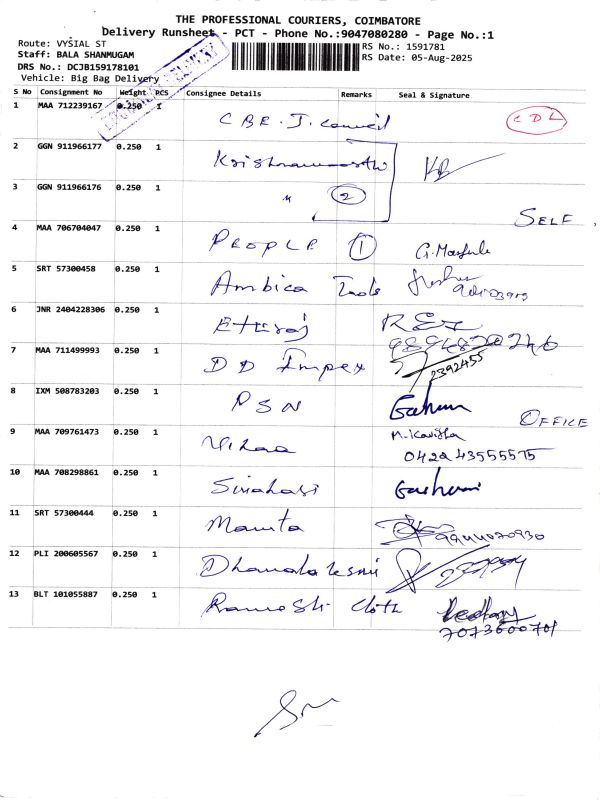 THE PROFESSIONAL COURIERS, COIMBATORE
Delivery Runsheet - PCT - Phone No.:9047080280 - Page No.:1
Route: VYSIAL ST
Staff: BALA SHANMUGAM
DRS No.: DCJB159178101
Vehicle: Big Bag Delivery
RS No.: 1591781
RS Date: 05-Aug-2025
S No Consignment No Weight PCS Consignee Details Remarks Seal & Signature
1 MAA 712239167 0.250 1 CBE. J. Council CDL
2 GGN 911966177 0.250 1 Krishnamoorthy
3 GGN 911966176 0.250 1 " 2
SELF
4 MAA 706704047 0.250 1 PEOPLE 1
5 SRT 57300458 0.250 1 Ambica
6 JNR 2404228306 0.250 1 Ethiraj
7 MAA 711499993 0.250 1 DD Impex 2392455
8 IXM 508783203 0.250 1 PSN
OFFICE
9 MAA 709761473 0.250 1 M. Kavitha
0422 43555575
10 MAA 708298861 0.250 1
11 SRT 57300444 0.250 1 Mamta 9944070930
12 PLI 200605567 0.250 1
13 BLT 101055887 0.250 1 Ramesh Cloth
7073600701